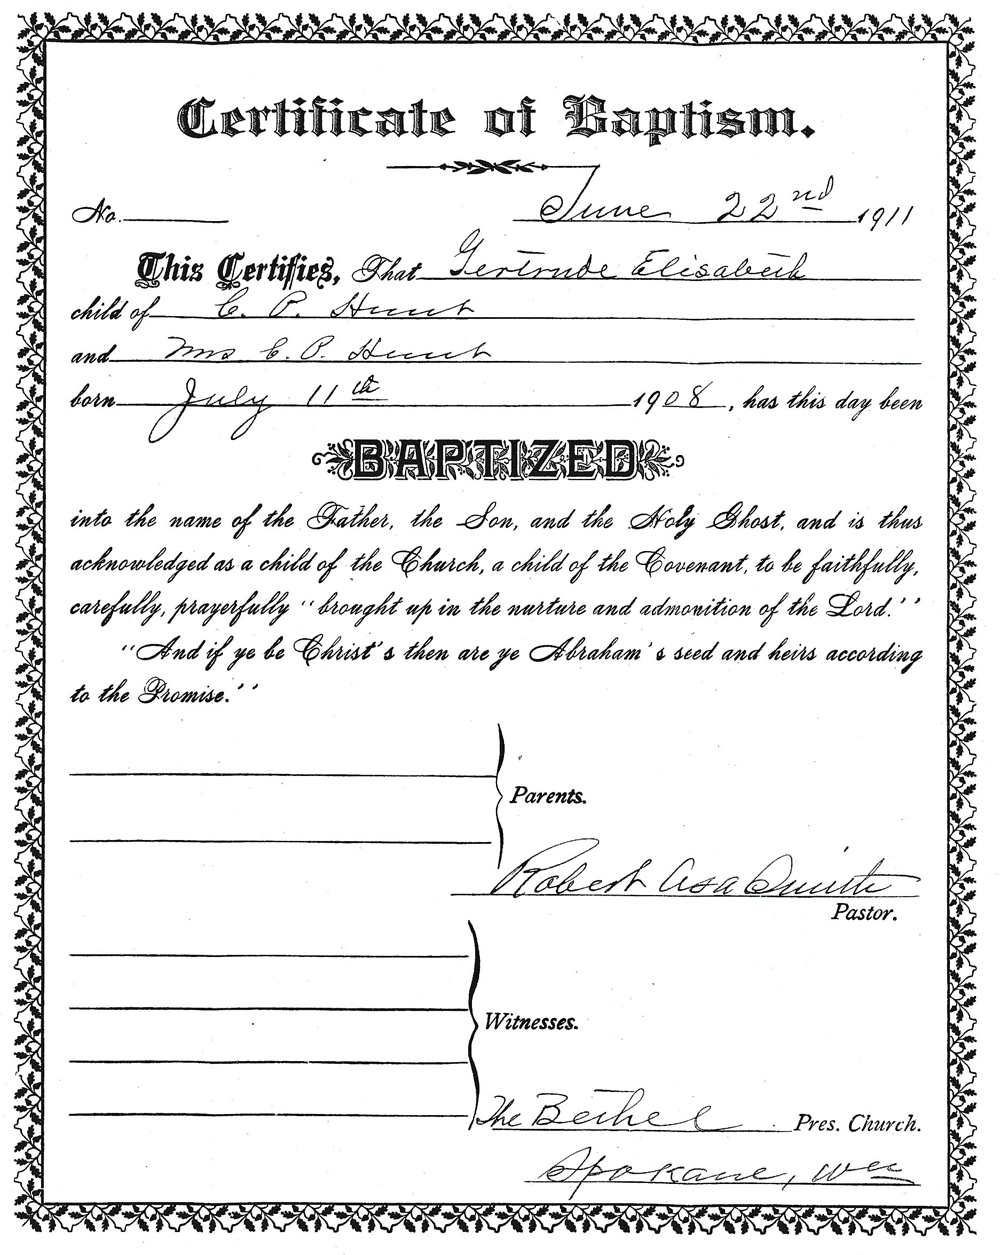 Certificate of Baptism.
No. June 22nd 1911
This Certifies, That Gertrude Elisabeth
child of C. P. Hunt
and Mrs C. P. Hunt
born July 11th 1908, has this day been
BAPTIZED
into the name of the Father, the Son, and the Holy Ghost, and is thus
acknowledged as a child of the Church, a child of the Covenant, to be faithfully,
carefully, prayerfully "brought up in the nurture and admonition of the Lord."
"And if ye be Christ's then are ye Abraham's seed and heirs according
to the Promise."
Parents.
Robert Asa Smith
Pastor.
Witnesses.
The Bethel Pres. Church.
Spokane, Wn